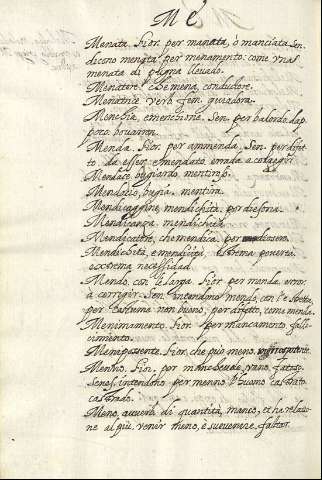 Me
Menata. Fior. per manata, ò manciata. Sen.
dicono menata per menamento: come una
menata di
Menatore che mena, conduttore.
Menatrice verb. fem. guiadora.
e Sen. per balordo, dap
poco.
Menda. Fior. per ammenda. Sen. per difet
to da esser emendato, errada a
Mendace, bugiardo, mentiroso.
Mendacio, bugia, mentira.
Mendicaggine, mendichità, pordioseria.
Mendicanza, mendichità.
Mendicatore, che mendica, pordiosero.
Mendichità, e mendicità, estrema povertà
extrema necessidad.
Mendo, con l'e larga Fior. per menda, error
a corregir. Sen. intendono mendo, con l'e stretta,
per costume non buono, per difetto, come menda.
Menimamento. Fior. per mancamento, falle-
cimiento.
Menipossente. Fior. che può meno,
Menno, Fior. per
Senesi intendono per menno, l'huomo castrato
castrado.
Meno, avverb. di quantità, manco, et ha relatio
ne al più. venir meno, è svenirse, faltar.